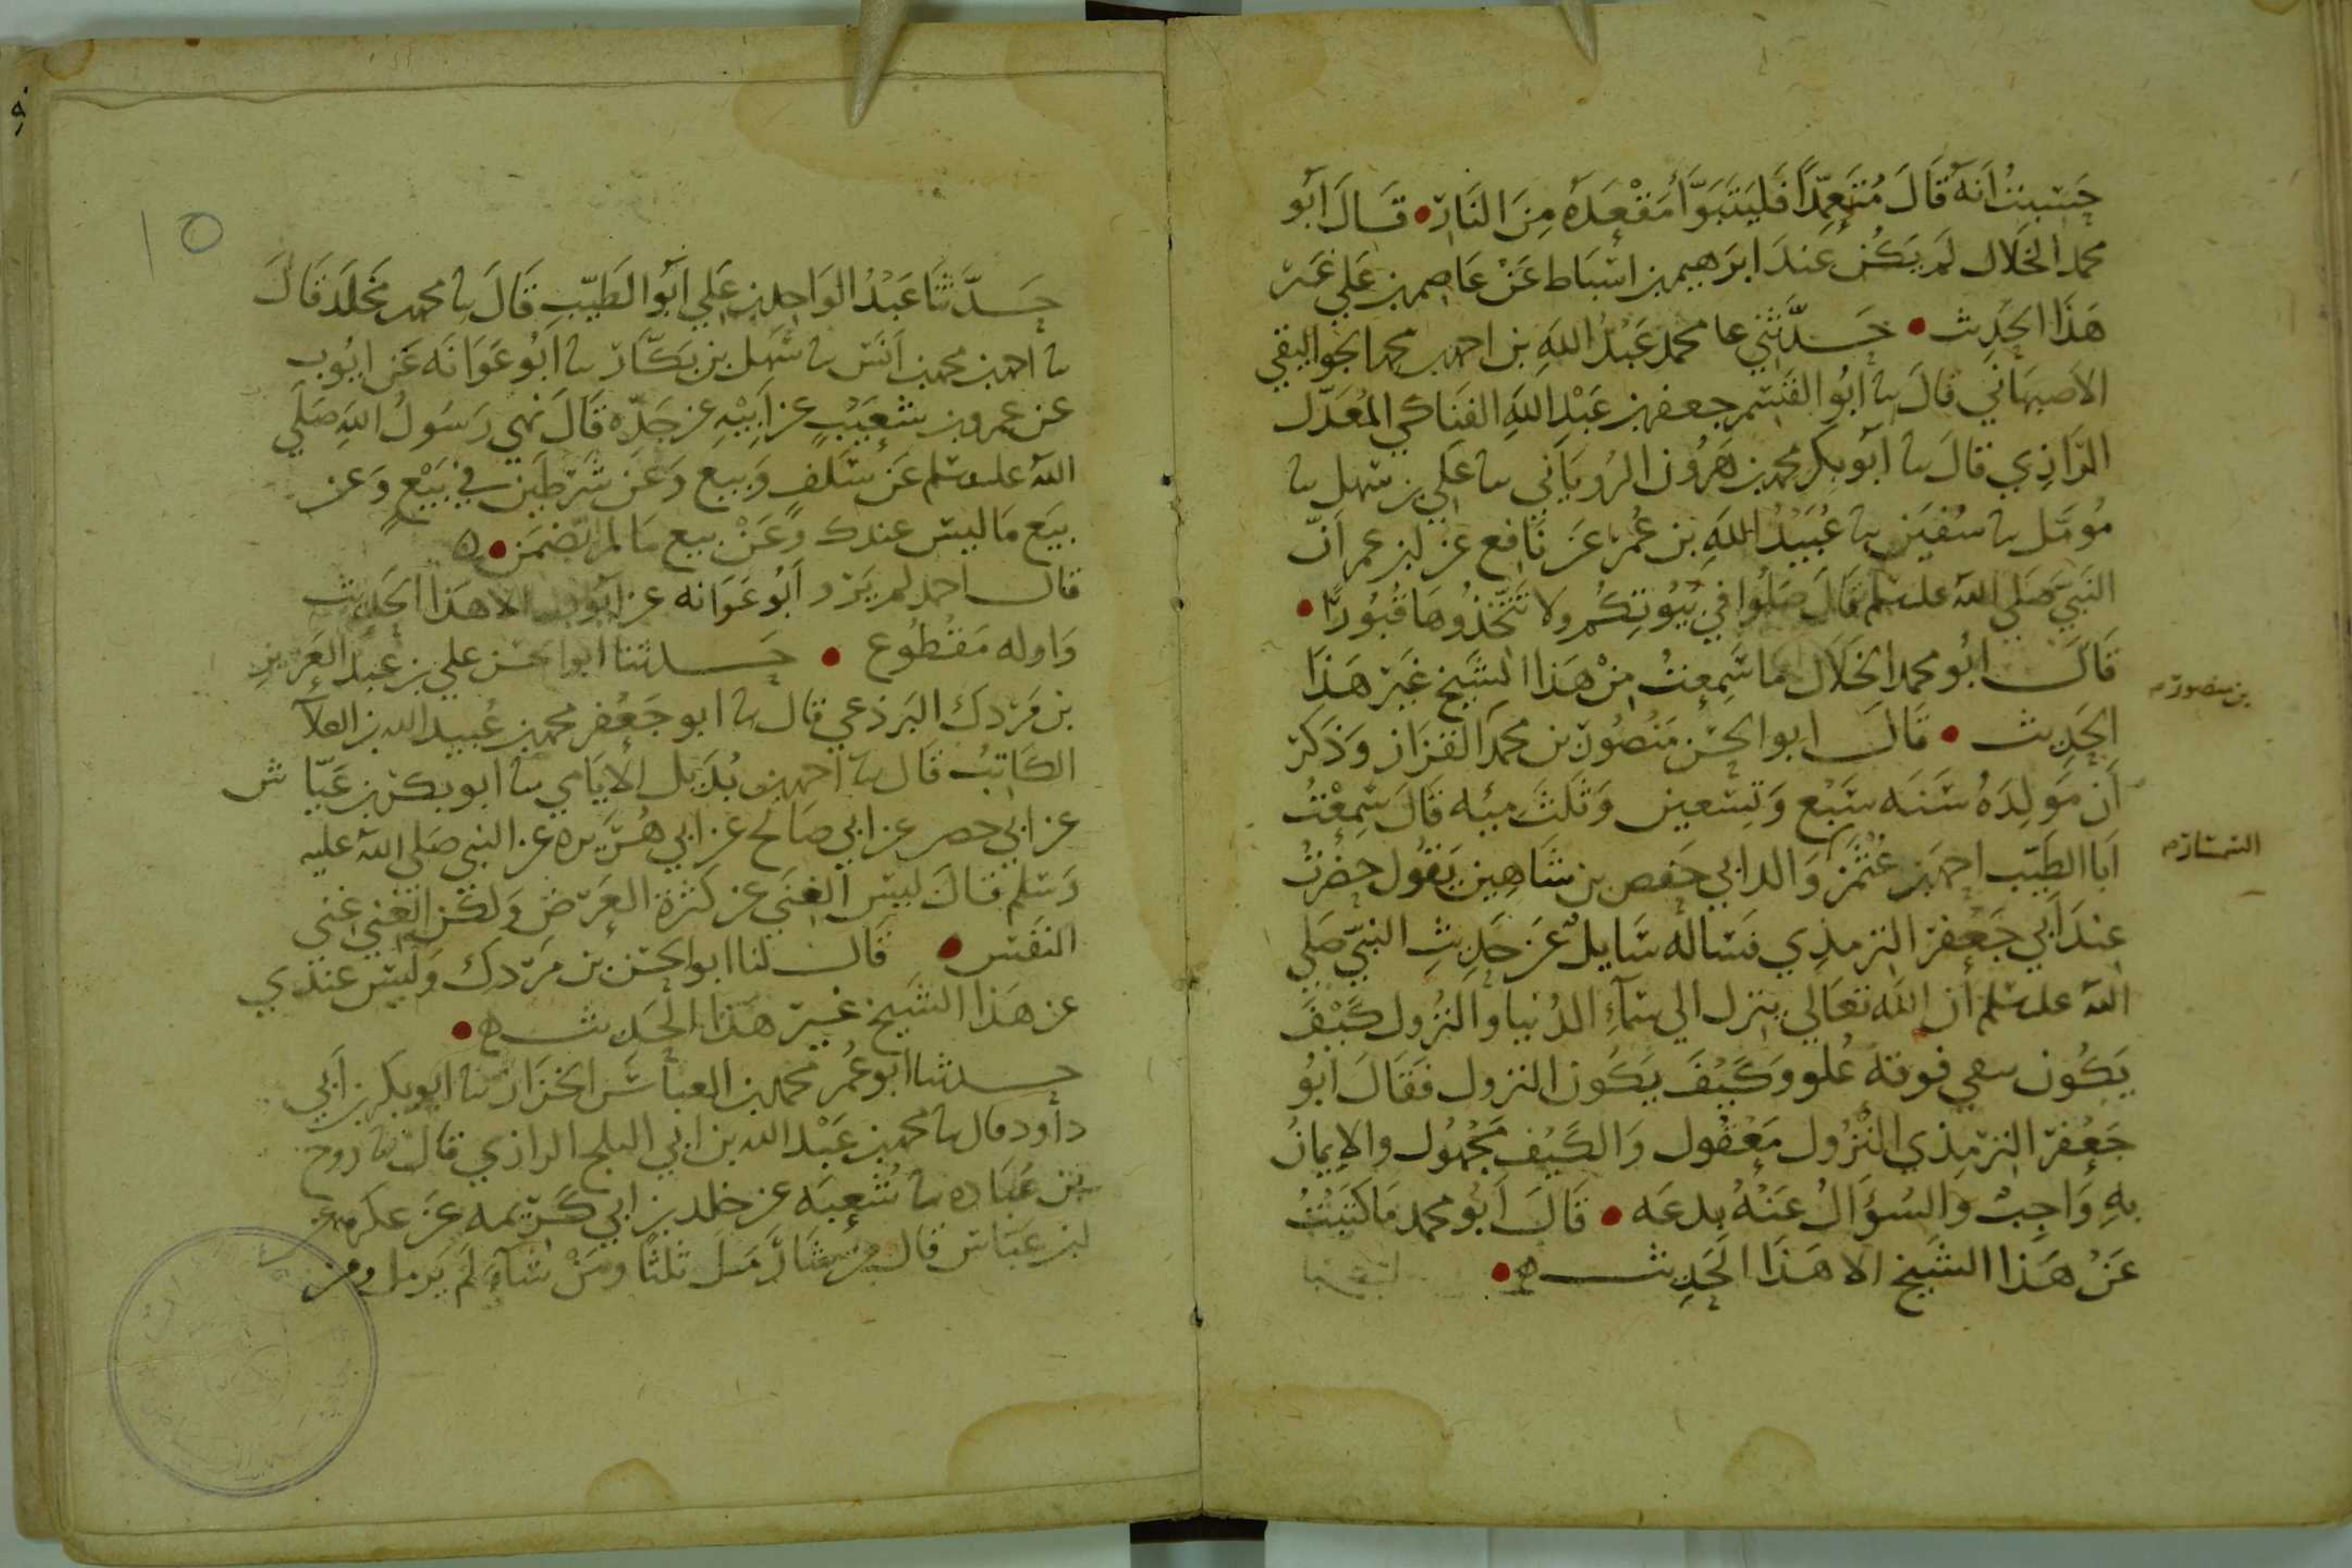 حَسِبتُ اَنهُ قَالَ مُتَعمِّدًا فَليَتَبَوَّأ مَقْعَدَهُ مِنَ النَارِ • قَالَ اَبُو
محمد الخَلال لَم يَكُن عِندَ ابرَهيم بن اسْبَاط عَنْ عَاصِم بن عَلي غَير
هَذَا الحَدِيث • حَدَّثَني محمد عَبْدُ اللهِ بن احمد بن محمد الجواليقي
الاصبهَاني قالَ نا ابُو القسم جعفر بن عَبْدِ اللهِ الفناكي المُعَدَّل
الرَازِي قالَ نا اَبُو بَكر محمد بن هَرُون الرُويَاني نا عَلي بن سَهل نا
مُومَّل نا سُفيَن نا عُبَيْدُ اللهِ بن عُمرَ عَن نَافِع عَن ابن عمر اَنّ
النَبيّ صَلي الله علیه وسلم قَالَ صَلُوا في بُيُوتِكُم ولا تَتَّخذُوهَا قُبُورًا •
قَالَ ابُو محمد الخَلَال مَا سَمِعتُ مِنْ هَذَا الشَيخ غَيرَ هَذَا
الحَدِيث • قَالَ ابو الحسَن مَنصُور بن محمد القزَاز وَذَكرَ
بن منصور م
أَن مَولِدَهُ سَنَه سَبْع وَتسْعين وَثَلثَ مِئه قَالَ سَمِعْتُ
اَبَا الطَيّب احمد بن عُثْمَن وَالد ابي حَفص بن شَاهِين يَقُول حَضَرتُ
السمسار م
عِندَ اَبي جَعفر الترمذِي فسَاله سَايلٌ عَن حَدِيثِ النبيّ صَلي
الله علیه وسلم أن الله تعَالي ينزل الي سَمآءِ الدُنيا والنزُول كَيْفَ
يَكُون سقي فوقهُ عُلو وَكَيْفَ يَكُون النزول فَقَالَ ابُو
جَعْفر الترمذي النُزُول مَعْقُول وَالكَيْف مَجْهُول والايمَانُ
بهِ وَاجِبٌ وَالسُؤَالُ عَنْهُ بدعَه • قَالَ اَبُو محمد مَا كَتَبْتُ
عَنْ هَذَا الشَيخ الا هَذَا الحَدِيث ه •
١٥
حَدَّثَنَا عَبْدُ الوَاحد بن عَلي اَبُو الطَيّب قَالَ نا محمد بن مَخلَد قَالَ
نا احمد بن محمد بن اَنَس نا سَهل بن بَكّار نا اَبُو عَوَانَه عَن ايُوب
عن عمرو بن شعَيبٍ عن اَبيْهِ عن جَدّه قَالَ نَهي رَسُولُ اللهِ صَلي
الله علیه وسلم عَن سَلَفٍ وَبيع وَعَن شَرطَين في بَيْعٍ وَعن
بيَع مَا ليسَ عندك وَعَنْ بيع مَا لم تَضمَن • ه
قال احمد لم يَرو اَبُو عَوَانه عن ايُوب الا هَذَا الحَديث
وَاوله مَقْطُوع • حَدثنا ابو الحسَن علي بن عَبد العَزيزِ
بن مَردك البَرذعي قال نا ابو جَعفر محمد بن عُبيد الله بن العَلآ
الكَاتبُ قَال نا احمد بن بُدَيل الايَامي نا ابو بكر بن عَيّاش
عن ابي حصر عن ابي صَالح عن ابي هُرَيره عن النبي صَلي الله عليه
وَسَلم قَالَ ليسَ الغنَي عن كَثرةِ العَرَض وَلكن الغِني غني
النَفس • قَال لنا ابو الحسَن بن مَردك وَليسَ عندي
عن هَذا الشَيخ غَيرَ هَذا الحَديث ه •
حدثنا ابو عُمر محمد بن العبَاسَ الخزاز نا ابو بكر بن اَبي
داود قال نا محمد بن عَبْد الله بن ابي الثلج الرازي قَال نا رَوح
بن عُبَاده نا شُعبَه عن خلد بن ابي كَريمه عَن عكرمه عن
ابن عَبَاس قَال مَن شَا رَّمَلَ ثَلثًا ومَنْ شآءَ لَم يَرمل ومن